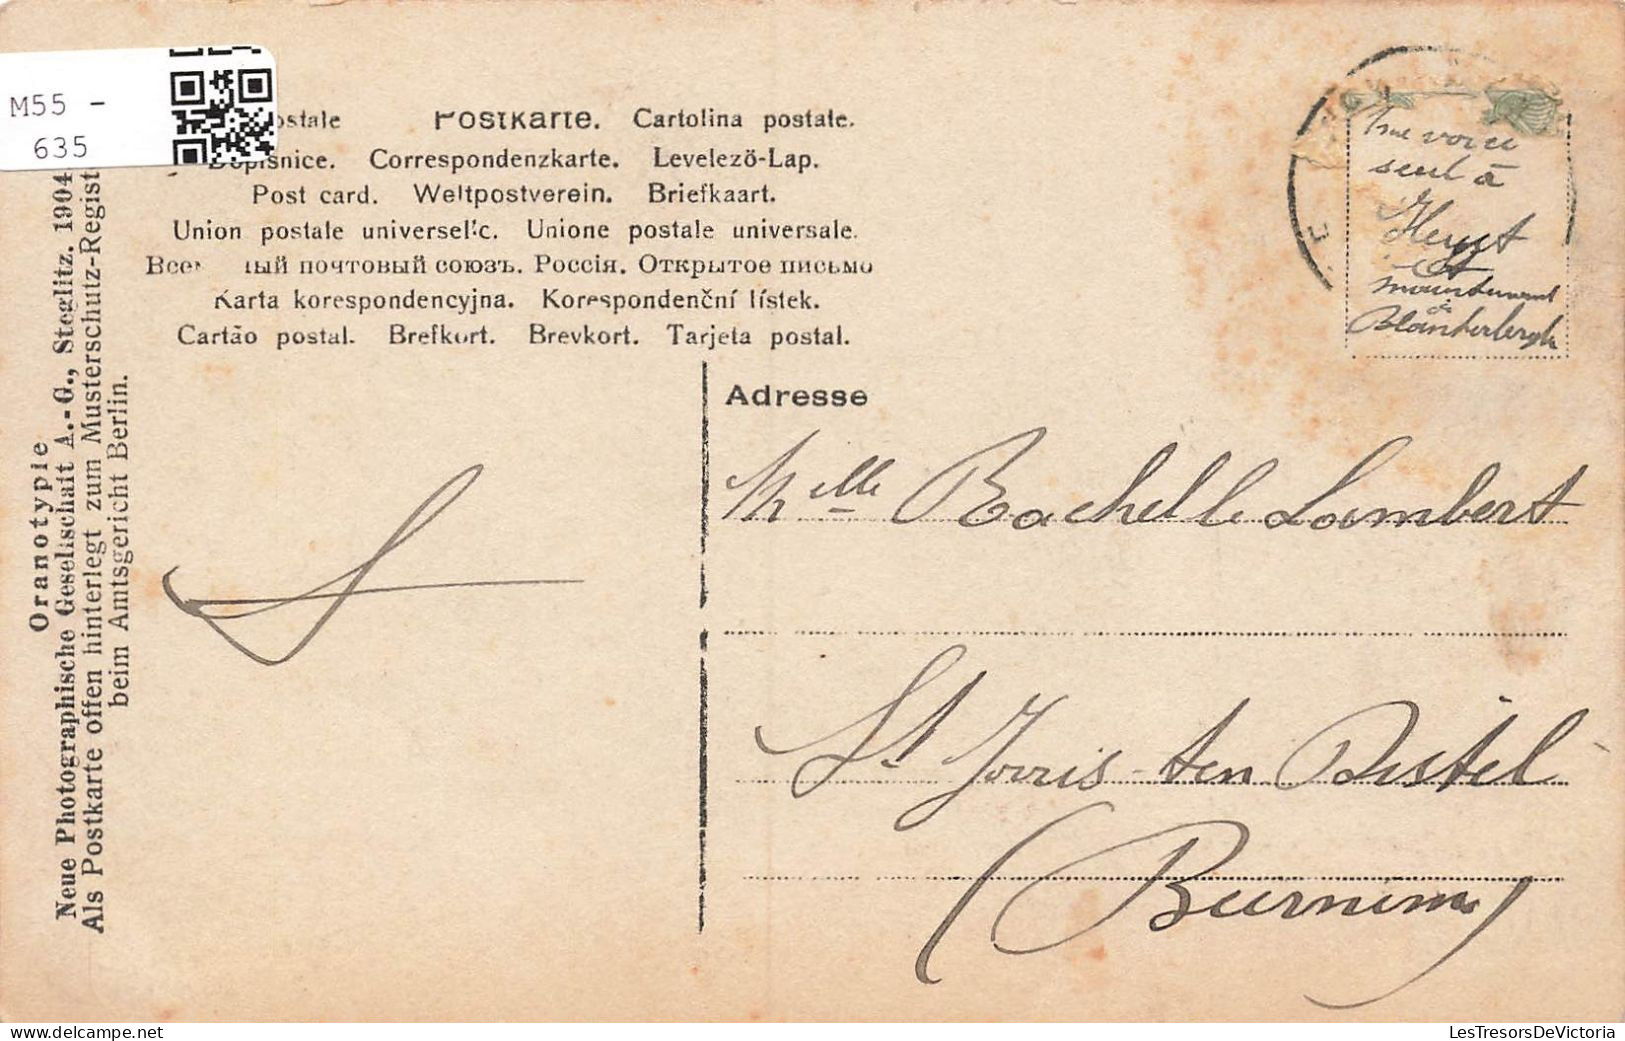 M55 -
635
ostale Postkarte. Cartolina postale.
Dopisnice. Correspondenzkarte. Levelező-Lap.
Post card. Weltpostverein. Briefkaart.
Union postale universelle. Unione postale universale.
Все ный почтовый союзъ. Россія. Открытое письмо
Karta korespondencyjna. Korespondenční lístek.
Cartão postal. Brefkort. Brevkort. Tarjeta postal.
Oranotypie
Neue Photographische Gesellschaft A.-G., Steglitz. 1904
Als Postkarte offen hinterlegt zum Musterschutz-Regist
beim Amtsgericht Berlin.
seul à
Heyst
et
maintenant
à
Blankerbergh
Adresse
Melle Rachelle Lambert
St Jorris ten Distel
(Beernem)
LesTresorsDeVictoria